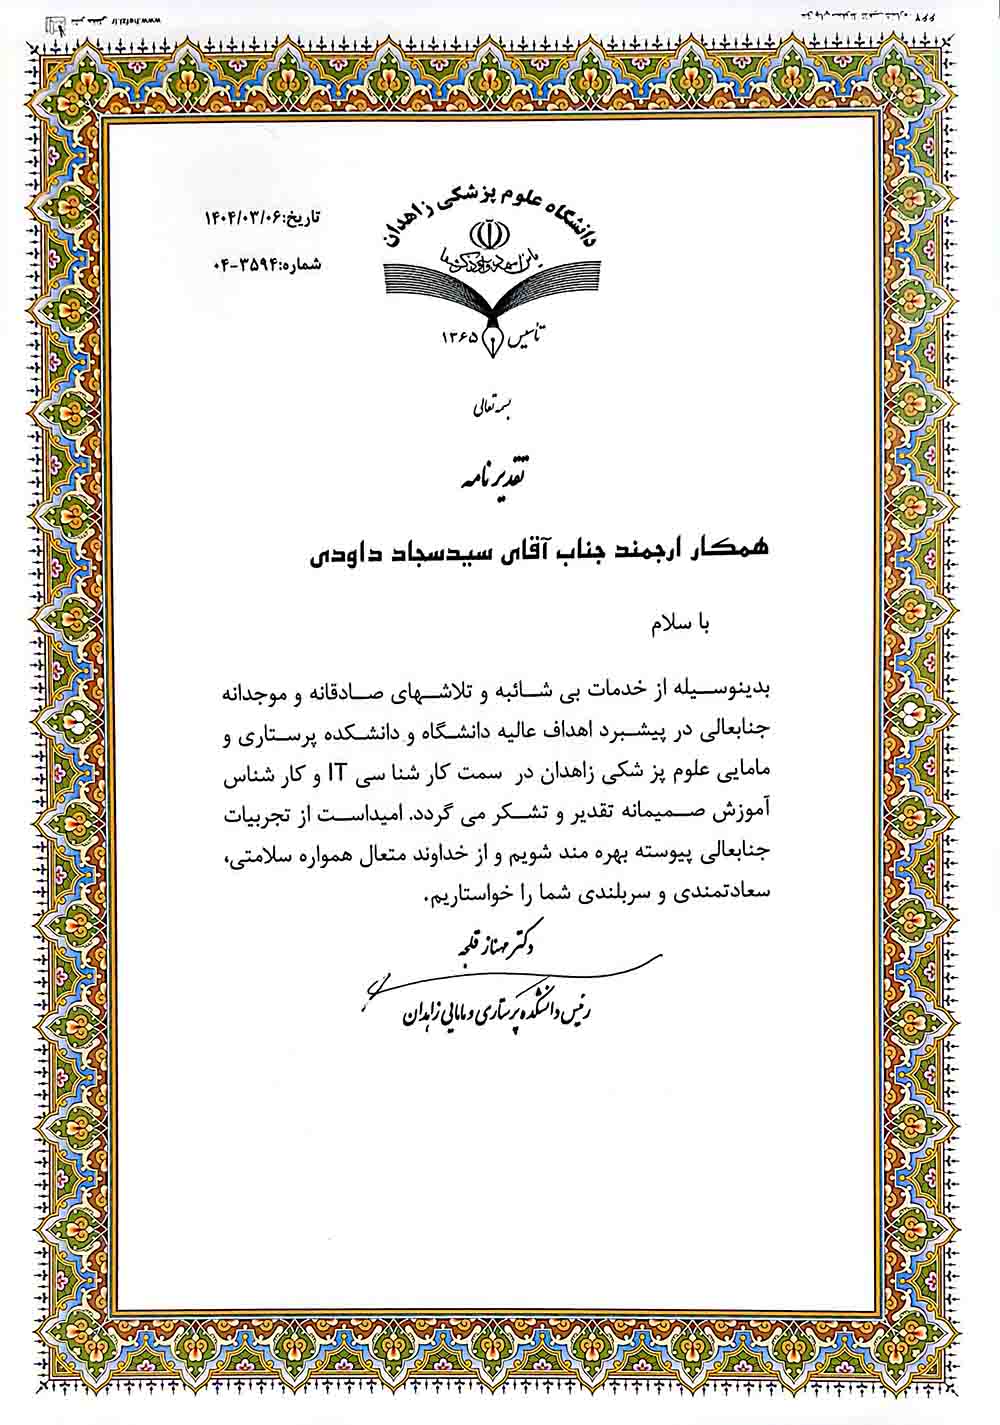 www.hafzi.ir
دانشگاه علوم پزشکی زاهدان
تاسیس ۱۳۶۵
تاریخ:۱۴۰۴/۰۳/۰۶
شماره:۳۵۹۴-۰۴
بسمه تعالی
تقدیر نامه
همکار ارجمند جناب آقای سیدسجاد داودی
با سلام
بدینوسیله از خدمات بی شائبه و تلاشهای صادقانه و موجدانه
جنابعالی در پیشبرد اهداف عالیه دانشگاه و دانشکده پرستاری و
مامایی علوم پز شکی زاهدان در سمت کار شنا سی IT و کار شناس
آموزش صمیمانه تقدیر و تشکر می گردد. امیداست از تجربیات
جنابعالی پیوسته بهره مند شویم و از خداوند متعال همواره سلامتی،
سعادتمندی و سربلندی شما را خواستاریم.
دکتر مهناز قلجه
رئیس دانشکده پرستاری و مامایی زاهدان